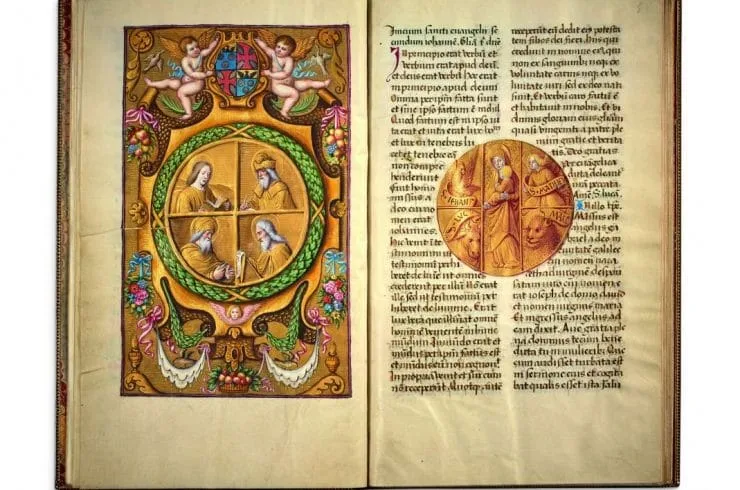 Inicium sancti evangelii se
cundum iohannē. Glīa t dñe
In principio erat verbū et
verbum erat apud deum
et deus erat verbū hoc erat
in principio apud deum
Omnia per ipm facta sunt
et sine ipso factum ē nichil
Quod factum est in ipso ui
ta erat et uita erat lux hom̄
et lux in tenebris lu
cet et tenebre eā
non compre
henderunt
Fuit homo
missus a
deo cui no
men erat
iohannes
Hic venit in te
stimoniū ut
testimoniū perhi
beret de lumine ut omnes
crederent per illū Nō erat
ille lux sed ut testimoniū per
hiberet de lumine. Erat
lux vera que illuminat omnē
hominē venientē in hunc
mūdum In mundo erat et
mūdus per ipm factus est
et mūdus eum non cognouit
In propria venit et sui eum
non receperunt Quotqt autē
receperunt eū dedit eis potesta
tem filios dei fieri his qui
credunt in nomine eius qui
non ex sanguinibus neqz ex
voluntate carnis neqz ex vo
luntate uiri sed ex deo nati
sunt. Et verbū caro factū ē
et habitauit in nobis. Et vi
dimus gloriam eius gloriam
quasi vnigeniti a patre ple
num gratie et verita
tis. Deo gratias
Per euāgelica
dicta deleant
nr̄a peccata
Amē. S. lucā.
In illo tpe.
Missus est
angelus ga
briel a deo in ci
uitatem galilee
cui nomen naza
reth ad uirginē despōsa
tam uiro cui nomen e
rat ioseph de domo dauid
et nomen virginis maria
Et ingressus angelus ad
eam dixit. Aue gratia ple
na dominus tecum bene
dicta tu in mulieribus Que
cum audisset turbata est
in sermone eius et cogita
bat qualis esset ista salu
IEHAN
S. MATHIE
S. LVC
S. MRC